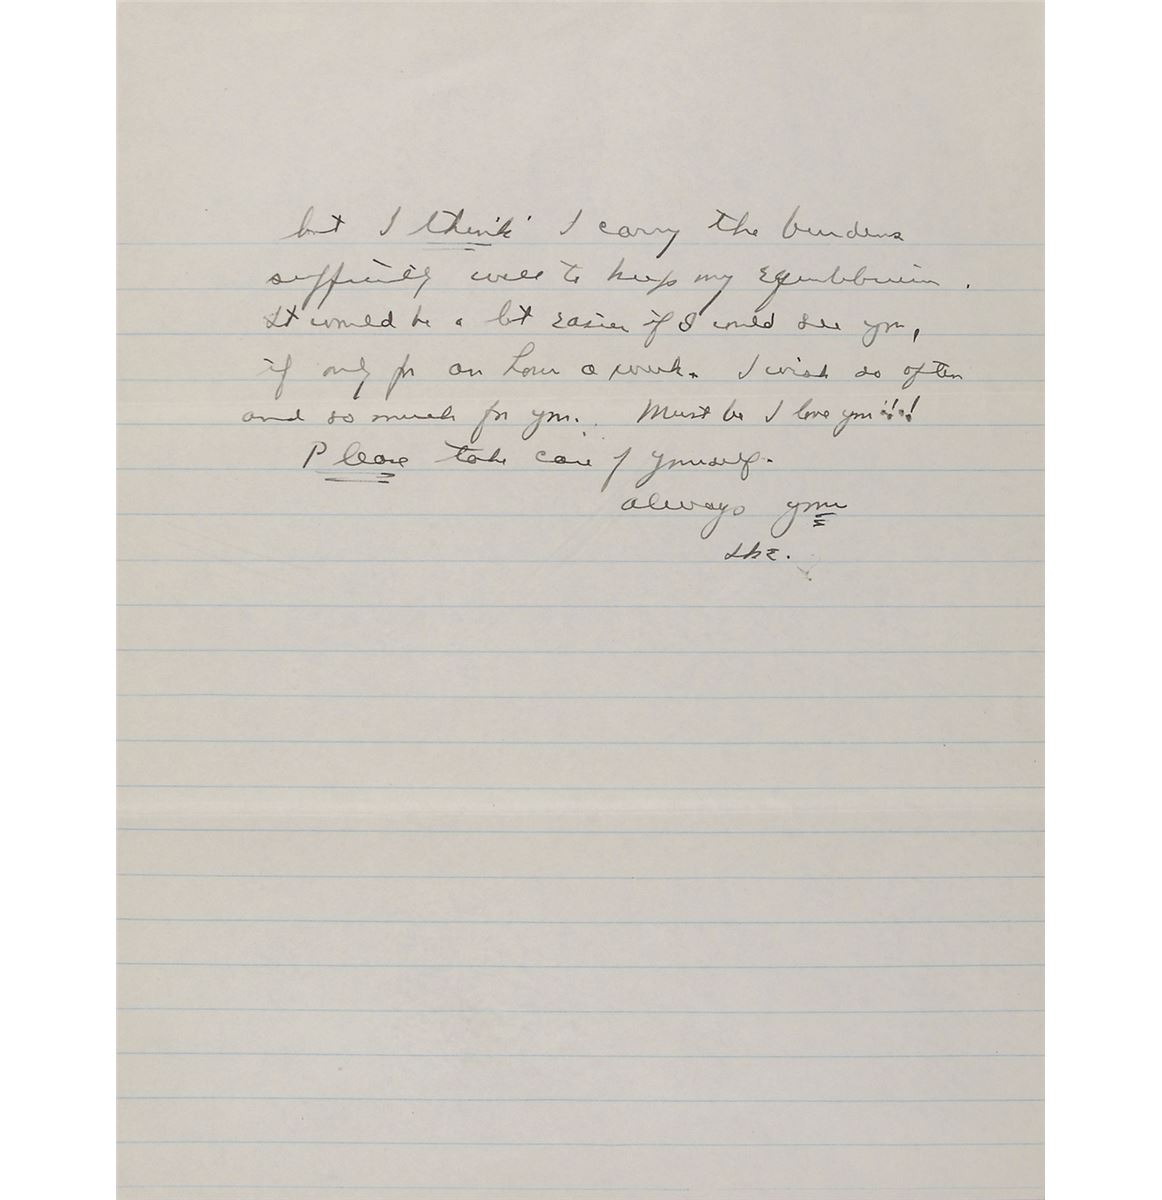 but I think I carry the burdens
sufficiently well to keep my equilibrium.
It would be a bit easier if I could see you,
if only for an hour a week. I wish so often
and so much for you. Must be I love you!!!
Please take care of yourself.
Always your
Ike.